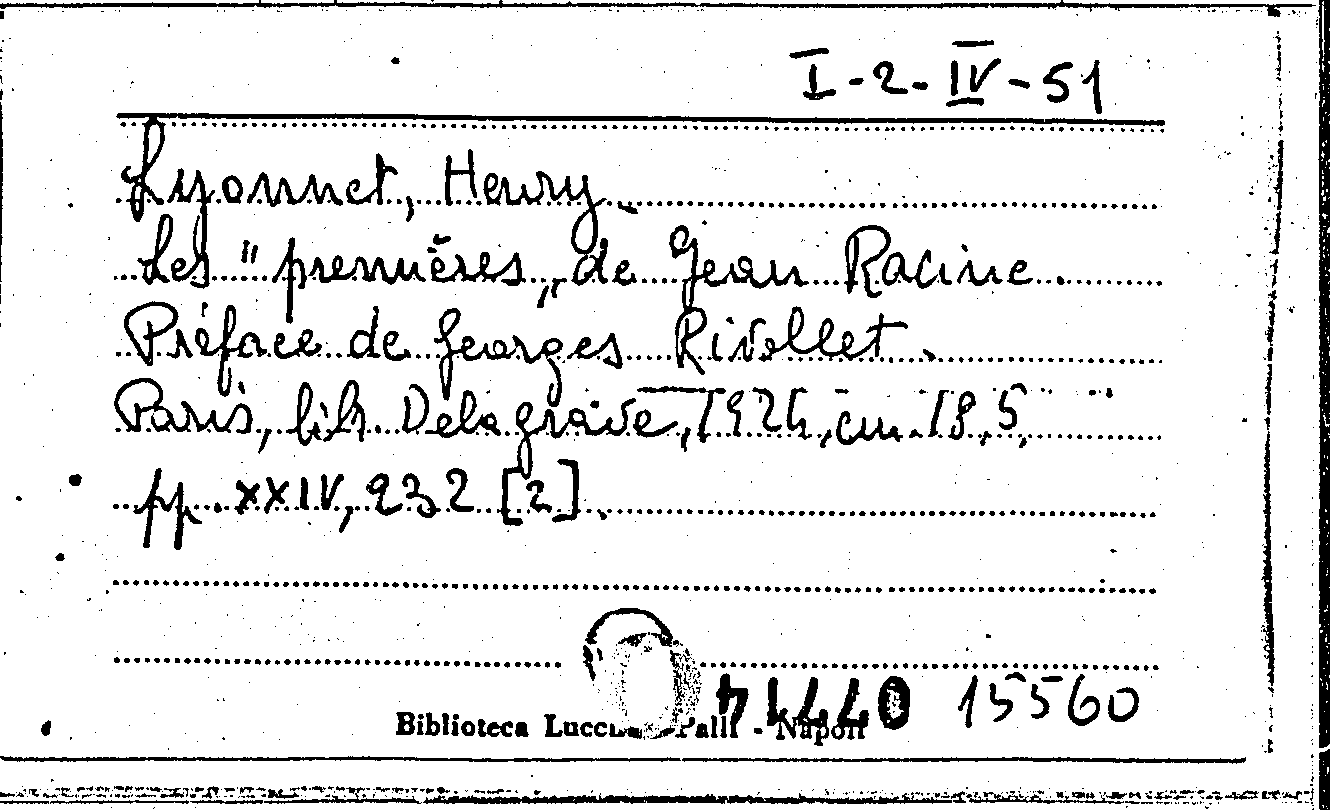 I-2-IV-51
Lyonnet, Henry.
Les "premières„ de Jean Racine.
Préface de Georges Rivollet.
Paris, lib. Delagrave, 1924, cm. 18,5,
pp. XXIV, 232 [2].
15560
Biblioteca Palli - Napoli